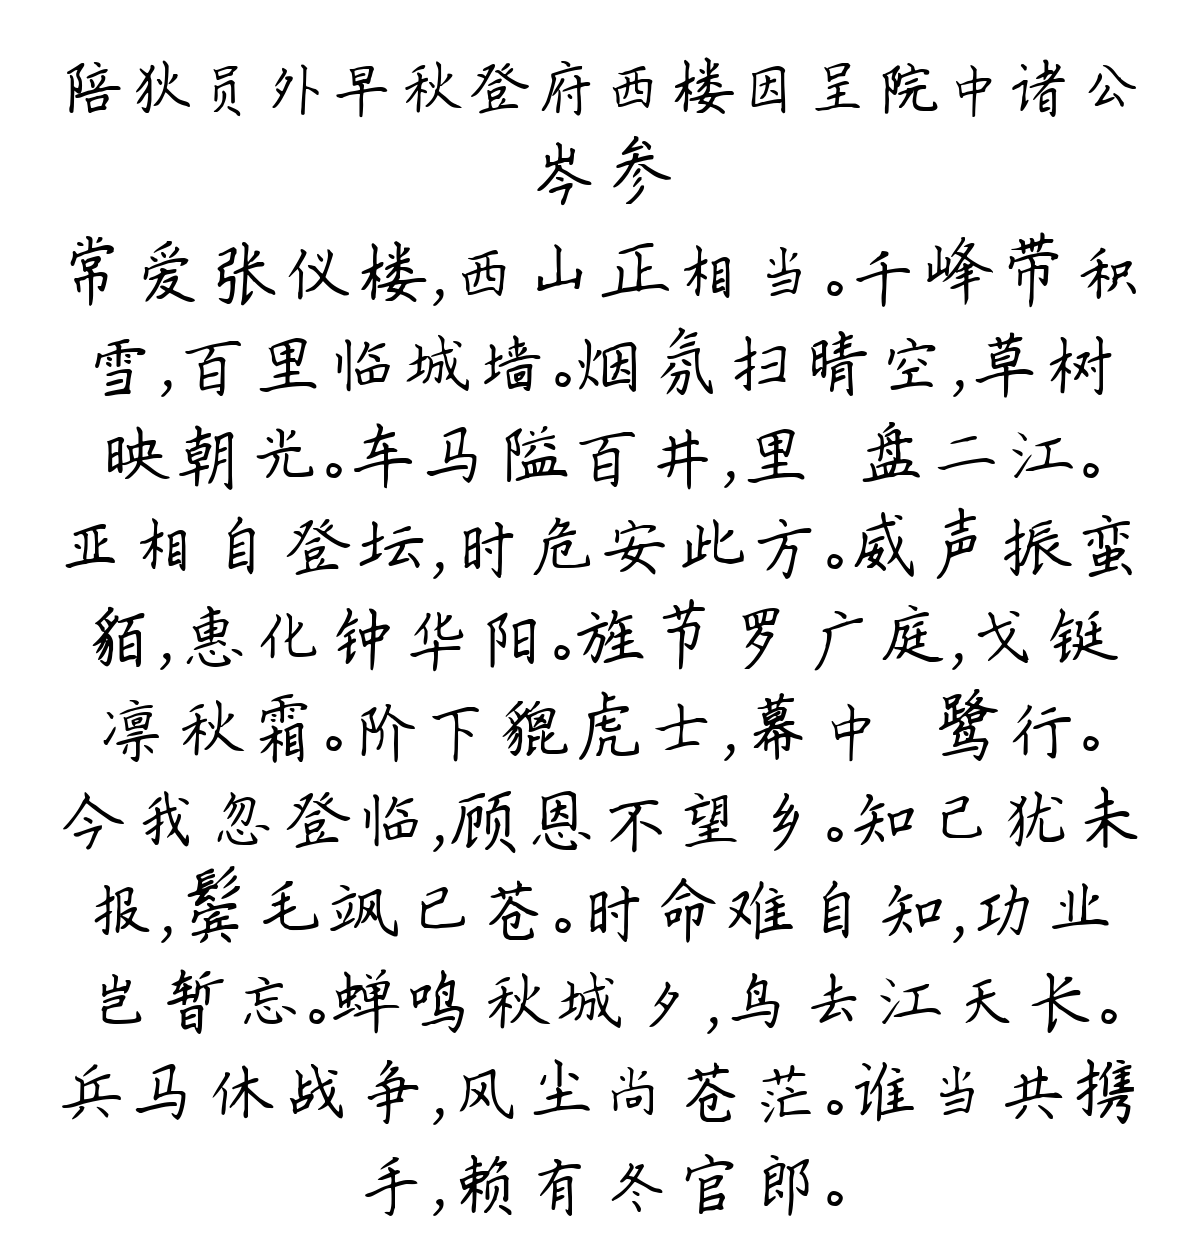 陪狄员外早秋登府西楼因呈院中诸公
岑参
常爱张仪楼,西山正相当。千峰带积
雪,百里临城墙。烟氛扫晴空,草树
映朝光。车马隘百井,里 盘二江。
亚相自登坛,时危安此方。威声振蛮
貊,惠化钟华阳。旌节罗广庭,戈铤
凛秋霜。阶下貔虎士,幕中 鹭行。
今我忽登临,顾恩不望乡。知己犹未
报,鬓毛飒已苍。时命难自知,功业
岂暂忘。蝉鸣秋城夕,鸟去江天长。
兵马休战争,风尘尚苍茫。谁当共携
手,赖有冬官郎。